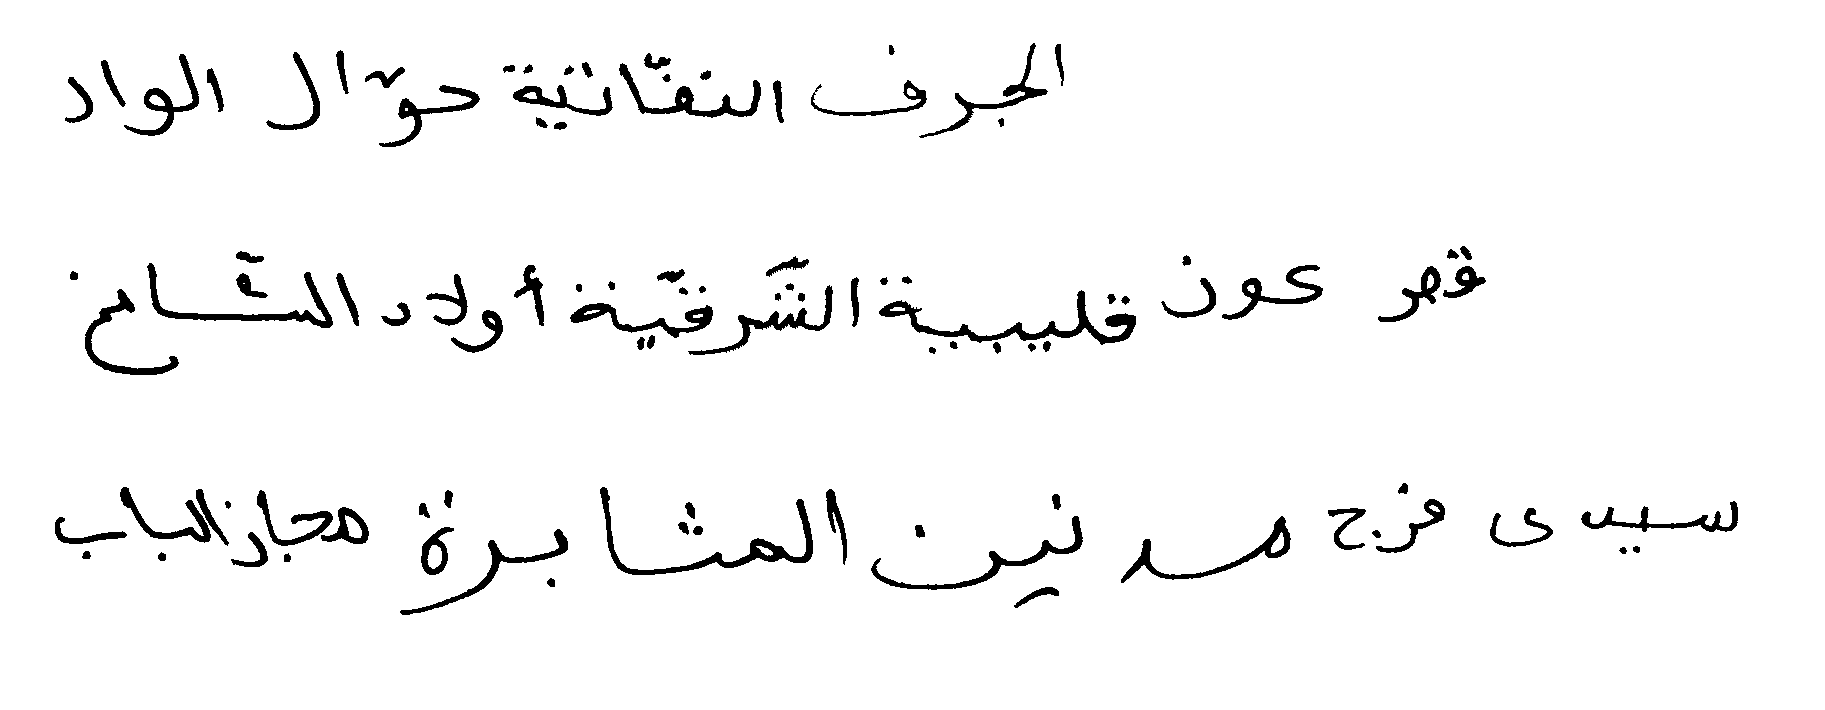 الجرف النفّاتيّة حوّال الواد
قصر عون قليبية الشّرقيّة أولاد الشّامخ
سيدي فرج مدنين المثابرة مجاز الباب